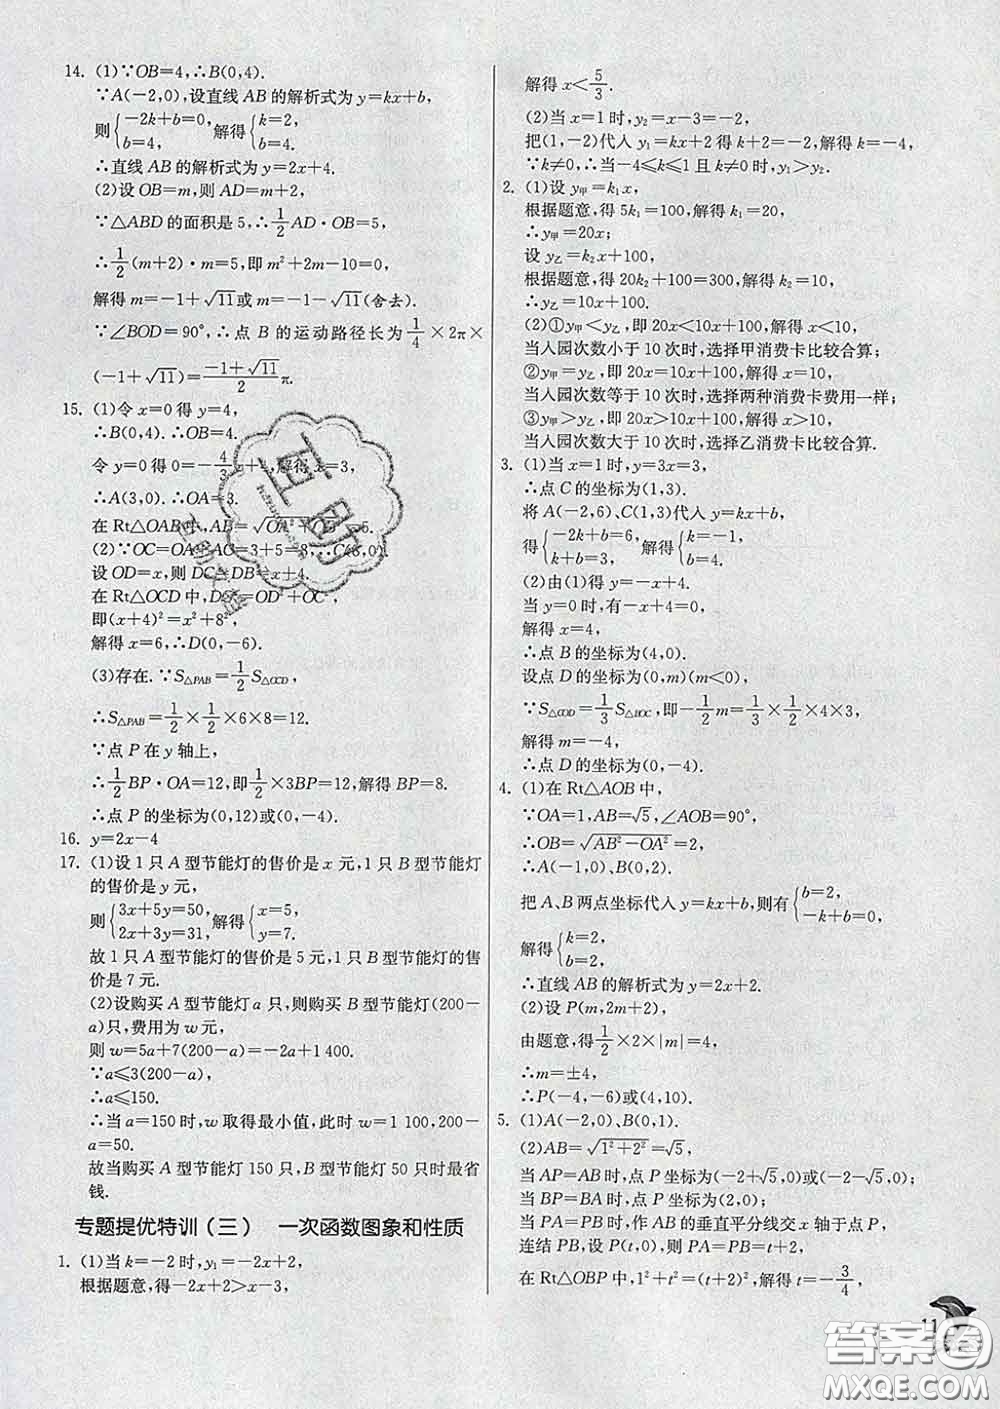 14. (1)∵OB=4,∴B(0,4).
∵A(-2,0),设直线 AB 的解析式为 y=kx+b,
则{-2k+b=0, b=4. 解得{k=2, b=4.
∴直线 AB 的解析式为 y=2x+4.
(2)设 OB=m,则 AD=m+2,
∵△ABD 的面积是 5,∴1/2 AD·OB=5,
∴1/2(m+2)·m=5,即 m²+2m-10=0,
解得 m=-1+√11或 m=-1-√11(舍去).
∵∠BOD=90°,∴点 B 的运动路径长为 1/4×2π×
(-1+√11)=(-1+√11)/2 π.
15. (1)令 x=0 得 y=4,
∴B(0,4).∴OB=4.
令 y=0 得 0=-4/3x+4,解得 x=3,
∴A(3,0).∴OA=3.
在 Rt△OAB 中,AB=√(OA²+OB²)=5.
(2)∵OC=OA+AC=3+5=8,∴C(8,0).
设 OD=x,则 DC=DB=x+4.
在 Rt△OCD 中,DC²=OD²+OC²,
即(x+4)²=x²+8²,
解得 x=6,∴D(0,-6).
(3)存在.∵S△PAB=1/2 S△OCD,
∴S△PAB=1/2×1/2×6×8=12.
∵点 P 在 y 轴上,
∴1/2 BP·OA=12,即1/2×3BP=12,解得 BP=8.
∴点 P 的坐标为(0,12)或(0,-4).
16. y=2x-4
17. (1)设 1 只 A 型节能灯的售价是 x 元,1 只 B 型节能灯
的售价是 y 元,
则{3x+5y=50, 2x+3y=31, 解得{x=5, y=7.
故 1 只 A 型节能灯的售价是 5 元,1 只 B 型节能灯的售
价是 7 元.
(2)设购买 A 型节能灯 a 只,则购买 B 型节能灯(200-
a)只,费用为 w 元,
则 w=5a+7(200-a)=-2a+1 400.
∵a≤3(200-a),
∴a≤150.
∴当 a=150 时,w 取得最小值,此时 w=1 100,200-
a=50.
故当购买 A 型节能灯 150 只,B 型节能灯 50 只时最省
钱.
专题提优特训(三) 一次函数图象和性质
1. (1)当 k=-2 时,y₁=-2x+2,
根据题意,得-2x+2>x-3,
解得 x<5/3.
(2)当 x=1 时,y₂=x-3=-2,
把(1,-2)代入 y₁=kx+2 得 k+2=-2,解得 k=-4,
∵k≠0,∴当-4≤k≤1 且 k≠0 时,y₁>y₂.
2. (1)设 y甲=k₁x,
根据题意,得 5k₁=100,解得 k₁=20,
∴y甲=20x;
设 y乙=k₂x+100,
根据题意,得 20k₂+100=300,解得 k₂=10,
∴y乙=10x+100.
(2)①y甲<y乙,即 20x<10x+100,解得 x<10,
当入园次数小于 10 次时,选择甲消费卡比较合算;
②y甲=y乙,即 20x=10x+100,解得 x=10,
当入园次数等于 10 次时,选择两种消费卡费用一样;
③y甲>y乙,即 20x>10x+100,解得 x>10,
当入园次数大于 10 次时,选择乙消费卡比较合算.
3. (1)当 x=1 时,y=3x=3,
∴点 C 的坐标为(1,3).
将 A(-2,6)、C(1,3)代入 y=kx+b,
得{-2k+b=6, k+b=3, 解得{k=-1, b=4.
(2)由(1)得 y=-x+4.
当 y=0 时,有-x+4=0,
解得 x=4,
∴点 B 的坐标为(4,0).
设点 D 的坐标为(0,m)(m<0),
∵S△COD=1/3 S△BOC,即-1/2m=1/3×1/2×4×3,
解得 m=-4,
∴点 D 的坐标为(0,-4).
4. (1)在 Rt△AOB 中,
∵OA=1,AB=√5,∠AOB=90°,
∴OB=√(AB²-OA²)=2,
∴A(-1,0)、B(0,2).
把 A、B 两点坐标代入 y=kx+b,则有{b=2, -k+b=0,
解得{k=2, b=2,
∴直线 AB 的解析式为 y=2x+2.
(2)设 P(m,2m+2),
由题意,得1/2×2×|m|=4,
∴m=±4,
∴P(-4,-6)或(4,10).
5. (1)A(-2,0)、B(0,1).
(2)AB=√(1²+2²)=√5,
当 AP=AB 时,点 P 坐标为(-2+√5,0)或(-2-√5,0);
当 BP=BA 时,点 P 坐标为(2,0);
当 PA=PB 时,作 AB 的垂直平分线交 x 轴于点 P,
连结 PB,设 P(t,0),则 PA=PB=t+2,
在 Rt△OBP 中,1²+t²=(t+2)²,解得 t=-3/4,
11
答案圈
MXQE.COM